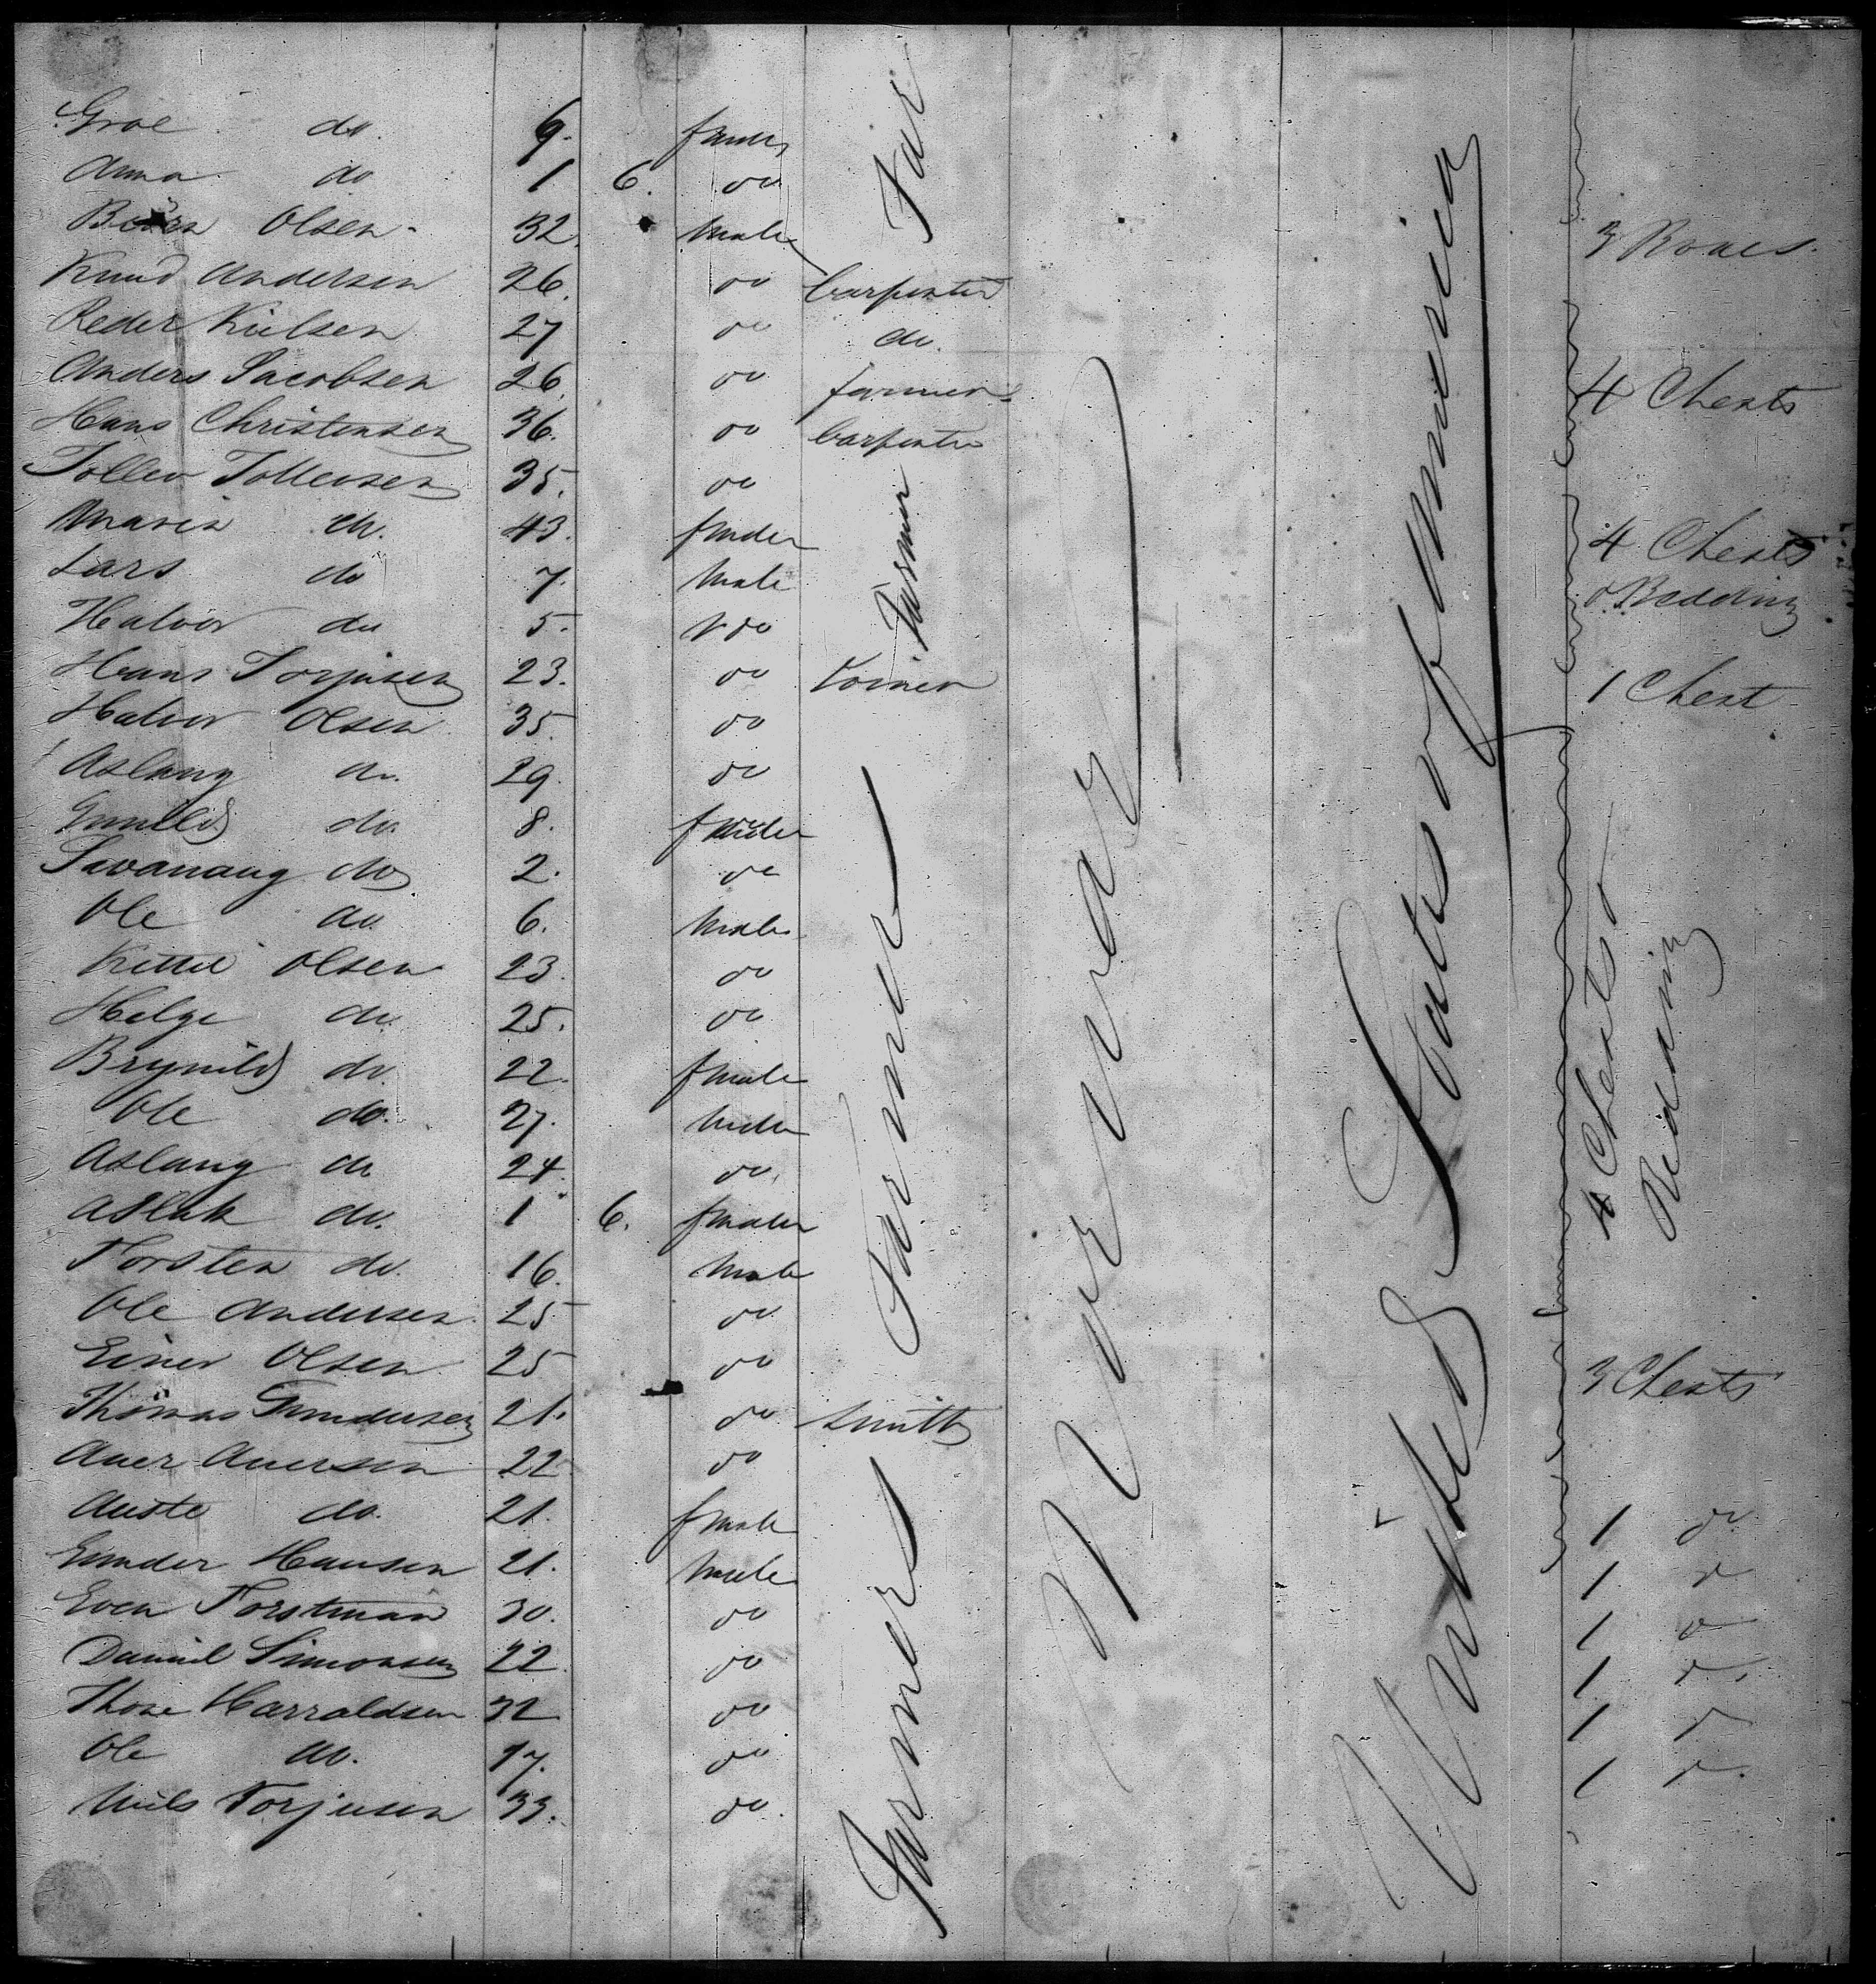 Groe do. 9. female
Anna do 1 6. do
Björn Olsen 32. Male 3 Boxes.
Knud Andersen 26. do Carpenter
Peder Nielsen 27 do do.
Anders Jacobsen 26. do farmer 4 Chests
Hans Christensen 36. do Carpenter
Tollev Tollevsen 35. do
Maria do. 43. female 4 Chests
Lars do 7. Male & Bedding
Halvor do 5. do
Hans Torjusen 23. do 1 Chest
Halvor Olsen 35. do
Aslaug do. 29. do
Gunild do. 8. female
do 2. do
Ole do. 6. Male
Kittil Olsen 23. do
Helge do. 25. do
Brynild do. 22. female
Ole do. 27. Male
Aslaug do 24. do.
Aslak do. 1 6. female
Torsten do. 16. Male
Ole Andersen. 25 do
Einer Olsen 25 do 3 Chests
Thomas Gundersen 21. do Smith
Auer Auersen 22 do
Auste do. 21. female 1 do
Gunder Hansen 21. Male 1 do
Even 30. do 1 do
Daniel Simonsen 22. do 1 do
Thore Harraldsen 32 do 1 do
Ole do. 17. do 1 do
Niels Torjusen 33. do.
Farmer
Farmers Farmer
Norway
United States of America
4 Chests &
Bedding